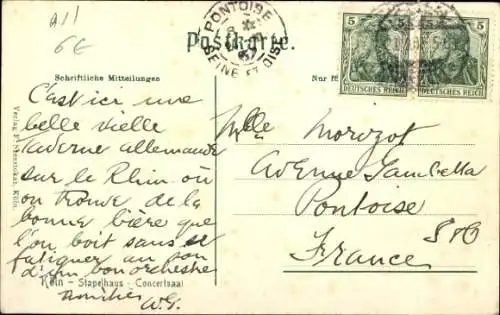 all
6€
PONTOISE
SEINE ET OISE
Postkarte.
5 5
DEUTSCHES REICH DEUTSCHES REICH
Schriftliche Mitteilungen
Nur fü
C'est ici une
belle vieille
taverne allemande
sur le Rhin où
on trouve de la
bonne bière que
l'on boit sans se
fatiguer au son
d'un bon orchestre
Amitiés
W.G.
Köln - Stapelhaus - Concertsaal
Köln.
Mlle Morizot
Avenue Gambetta
Pontoise
S & O
France